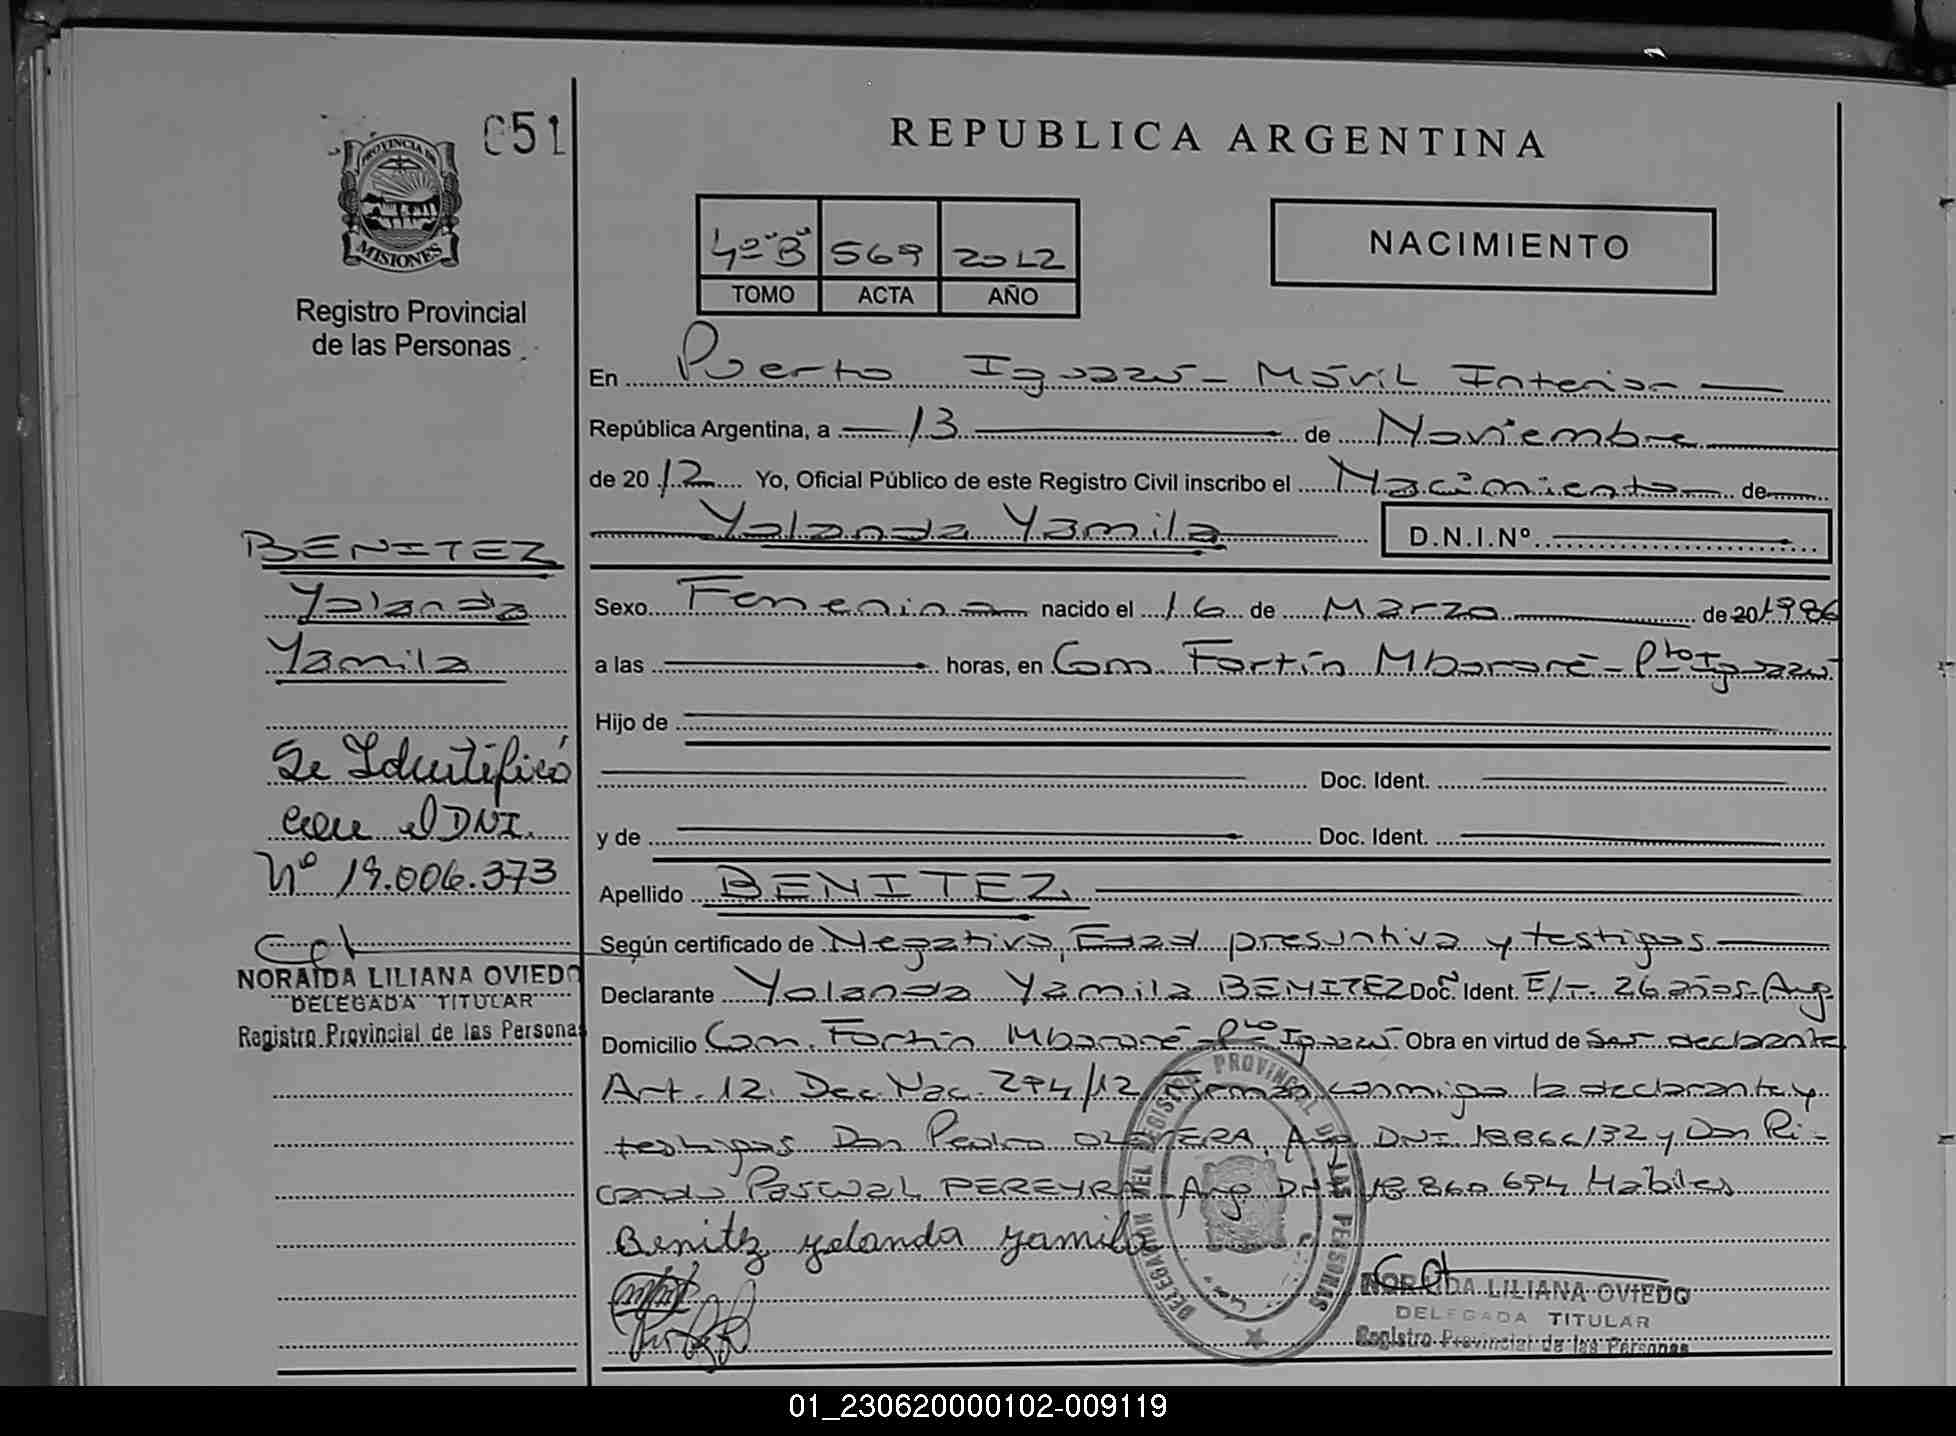 051
PROVINCIA DE
MISIONES
Registro Provincial
de las Personas
BENITEZ
Yolanda
Yamila
Se Identificó
con el DNI.
Nº 19.006.373
NORAIDA LILIANA OVIEDO
DELEGADA TITULAR
Registro Provincial de las Personas
REPUBLICA ARGENTINA
4º"B" 569 2012
TOMO ACTA AÑO
NACIMIENTO
En Puerto Iguazú - Móvil Interior
República Argentina, a 13 de Noviembre
de 2012 Yo, Oficial Público de este Registro Civil inscribo el Nacimiento de
Yolanda Yamila D.N.I.Nº
Sexo Femenino nacido el 16 de Marzo de 20 1986
a las horas, en Com. Fortín Mbororé - Pto Iguazú
Hijo de
Doc. Ident.
y de Doc. Ident.
Apellido BENITEZ
Según certificado de Negativo, Edad presuntiva y testigos
Declarante Yolanda Yamila BENITEZ Doc. Ident. E/T. 26 años - Arg
Domicilio Com. Fortín Mbororé - Pto Iguazú. Obra en virtud de ser declarante
Art. 12. Dec. Nac. 294/12 Firman conmigo la declarante y
testigos Don Pedro OLIVERA, Arg DNI 18866132 y Don Ri-
cardo Pascual PEREYRA - Arg DNI 18.860.694 Habiles
Benitz yolanda yamila
DELEGACION DEL REGISTRO PROVINCIAL DE LAS PERSONAS
NORAIDA LILIANA OVIEDO
DELEGADA TITULAR
Registro Provincial de las Personas
01_230620000102-009119